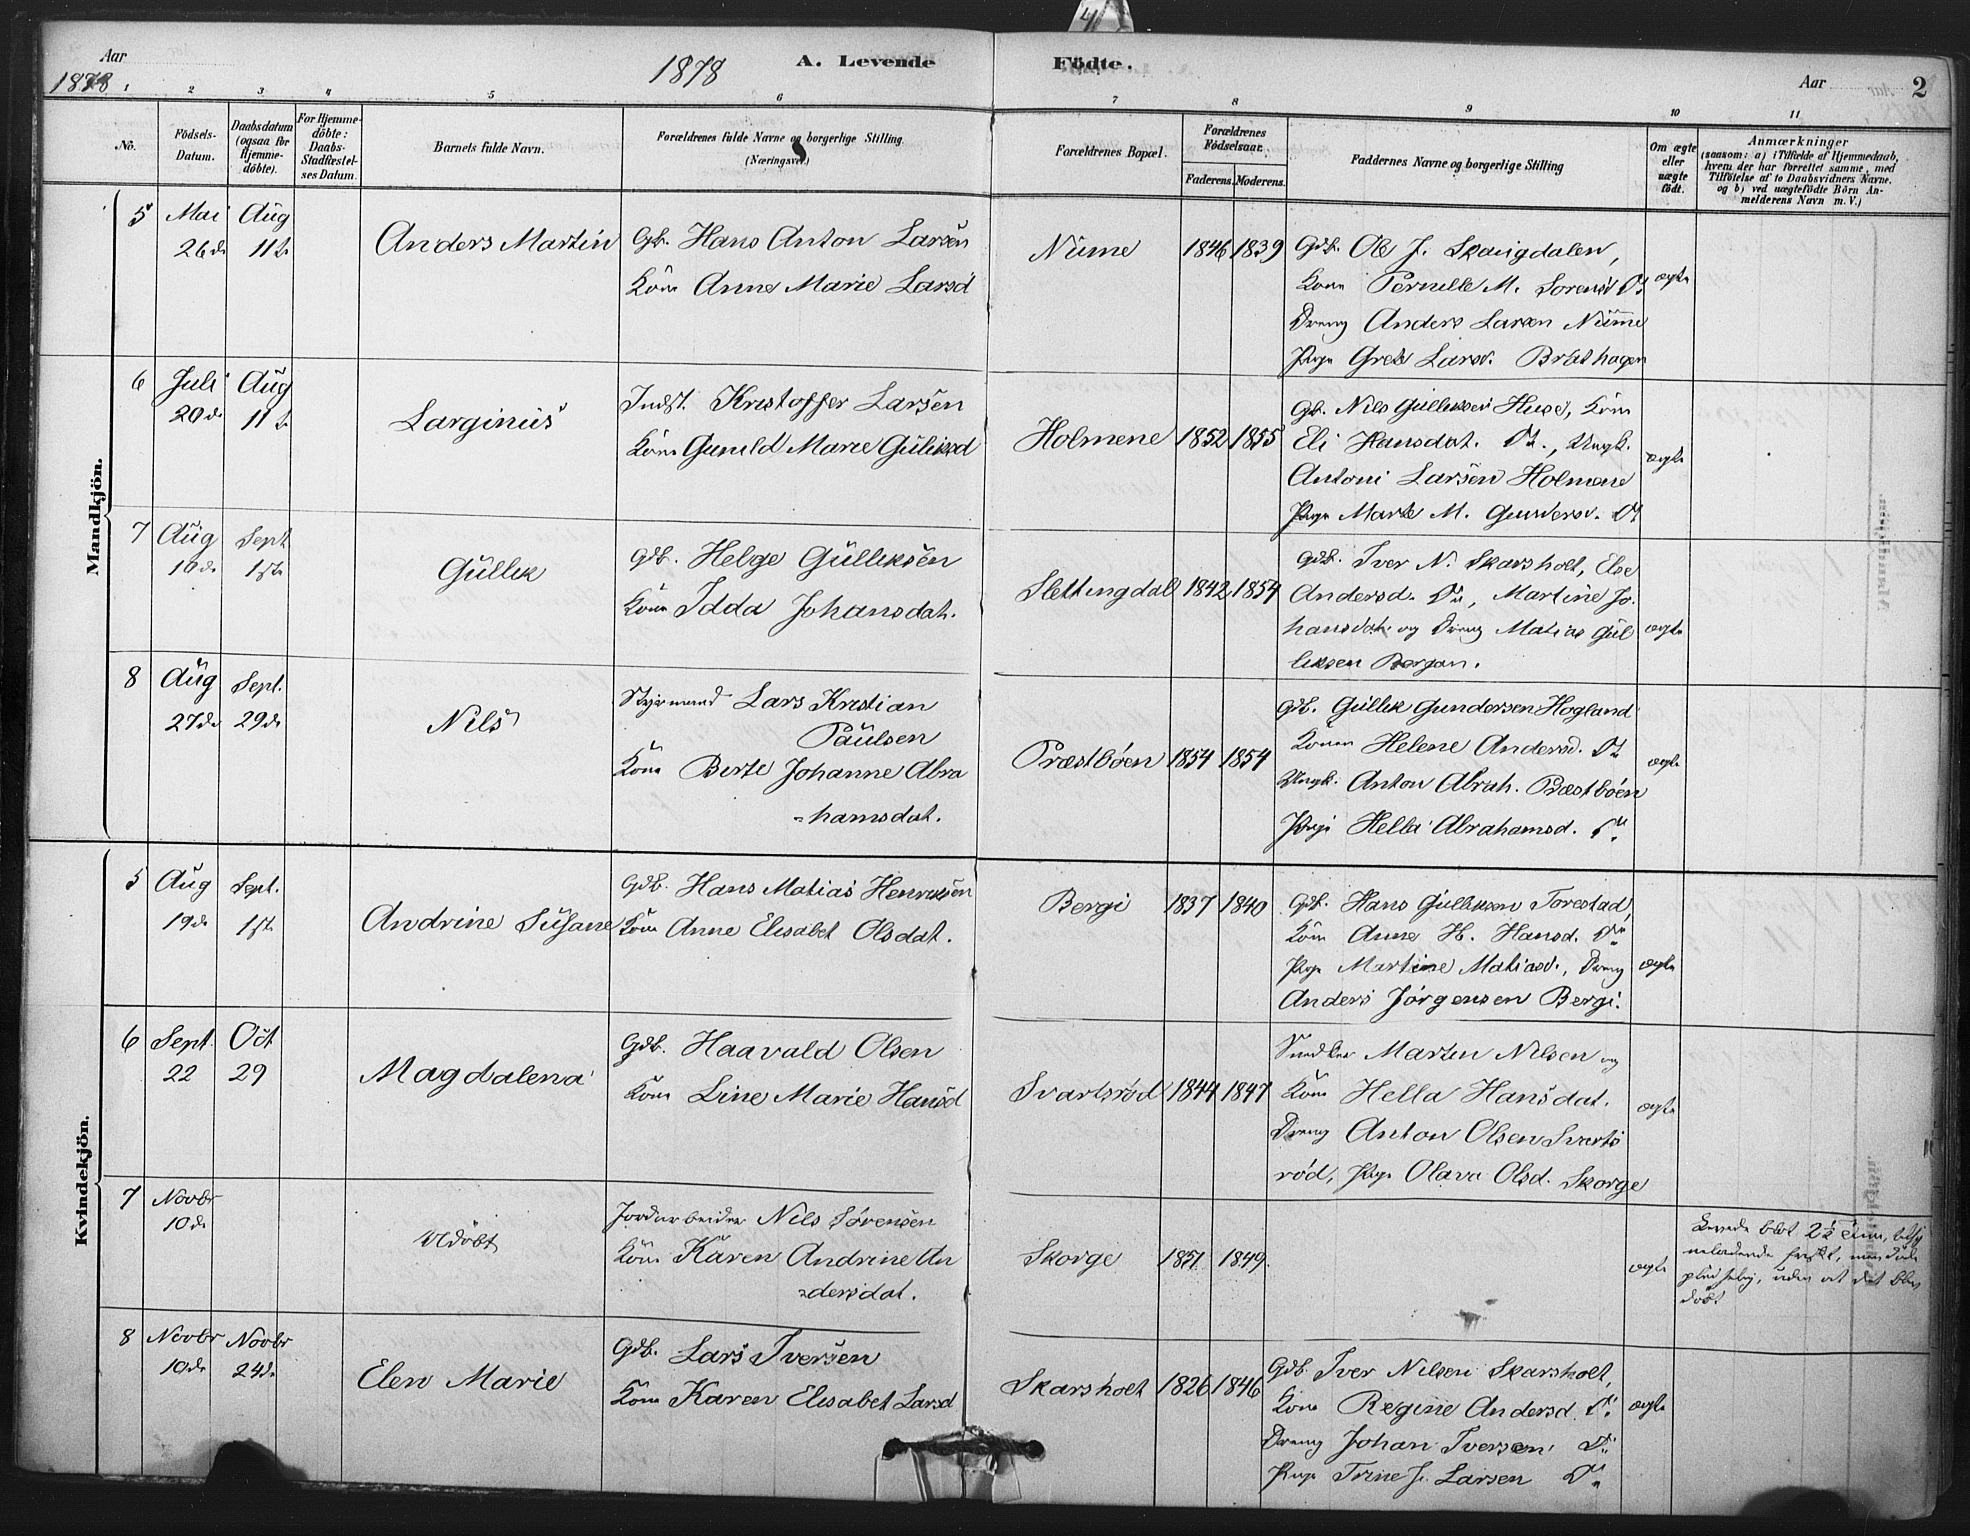 Aar 1878
1878
A. Levende Födte.
Aar 2
1 2 3 4 5 6 7 8 9 10 11
No.
Födsels-Datum.
Daabsdatum (ogsaa for Hjemme-döbte).
For Hjemme-döbte: Daabs-Stadfæstel-ses Datum.
Barnets fulde Navn.
Forældrenes fulde Navne og borgerlige Stilling (Næringsvei.)
Forældrenes Bopæl.
Forældrenes Födselsaar.
Faderens. Moderens.
Faddernes Navne og borgerlige Stilling
Om ægte eller uægte födt.
Anmærkninger
(saasom: a) i Tilfælde af Hjemmedaab, hvem der har forrettet samme, med Tilföielse af to Daabsvidners Navne, og b) ved uægtefödte Börn An-melderens Navn m. V.)
Mandkjön.
5 Mai 26de Aug 11te
Anders Martin
Gb. Hans Anton Larsen
Kone Anne Marie Larsd
Nume 1846 1839
Gdb. Ole J. Skaugdalen,
Kone Pernille M. Sorensd Do
Dreng Anders Larsen Numme
Pige Grete Larsd. Bråthagen
ægte
6 Juli 20de Aug 11te
Larginius
Indst. Kristoffer Larsen
Kone Gunild Marie Guliksd
Holmene 1852 1855
Gb. Nils Gulliksen Huse, Kone
Eli Hansdat. Do., Ungk.
Antoni Larsen Holmene
Pige Marte M. Gundersd. Do
ægte
7 Aug 10de Sept 1ste
Gullik
Gdb. Helge Gulliksen
Kone Idda Johansdat.
Slettingdal 1842 1854
Gdb. Iver N. Skarsholt, Else
Andersd. Do, Martine Jo-
hansdat. og Dreng Matias Gul
liksen Bergan.
ægte
8 Aug 27de Sept. 29de
Nils
Styrmand Lars Kristian
Paulsen
Kone Berte Johanne Abra
-hamsdat.
Præstbøen 1854 1854
Gdb. Gullik Gundersen Hogland
Konen Helene Andersd. Do
Ungk. Anton Abrah. Præstbøen
Pige Hella Abrahamsd. Do
ægte
Kvindekjön.
5 Aug 19de Sept. 1ste
Andrine Susane
Gdb. Hans Matias Henriksen
Kone Anne Elisabet Olsdat.
Bergi 1837 1840
Gdb. Hans Gulliksen Torestad,
Kone Anne H. Hansd. Do
Pige Martine Matiasd., Dreng
Anders Jørgensen Bergi.
ægte
6 Sept. 22 Oct 29
Magdalena
Gdb. Haavald Olsen
Kone Line Marie Hansd
Svartsrød 1844 1847
Snedker Martin Nilsen og
Kone Hella Hansdat.
Dreng Anton Olsen Svarts
rød, Pige Olava Olsd. Skorge
ægte
7 Novbr 10de
Udöbt
Jordarbeider Nils Sørensen
Kone Karen Andrine An
-dersdat.
Skorge 1851 1849.
ægte
Levede blot 2½ Time,
men døde
uden at det blev
døbt
8 Novbr 10de Novbr 24de
Elen Marie
Gdb. Lars Iversen
Kone Karen Elisabet Larsd
Skarsholt 1826 1846
Gdb. Iver Nilsen Skarsholt,
Kone Regine Andersd. Do
Dreng Johan Iversen Do
Pige Trine J. Larsen Do
ægte